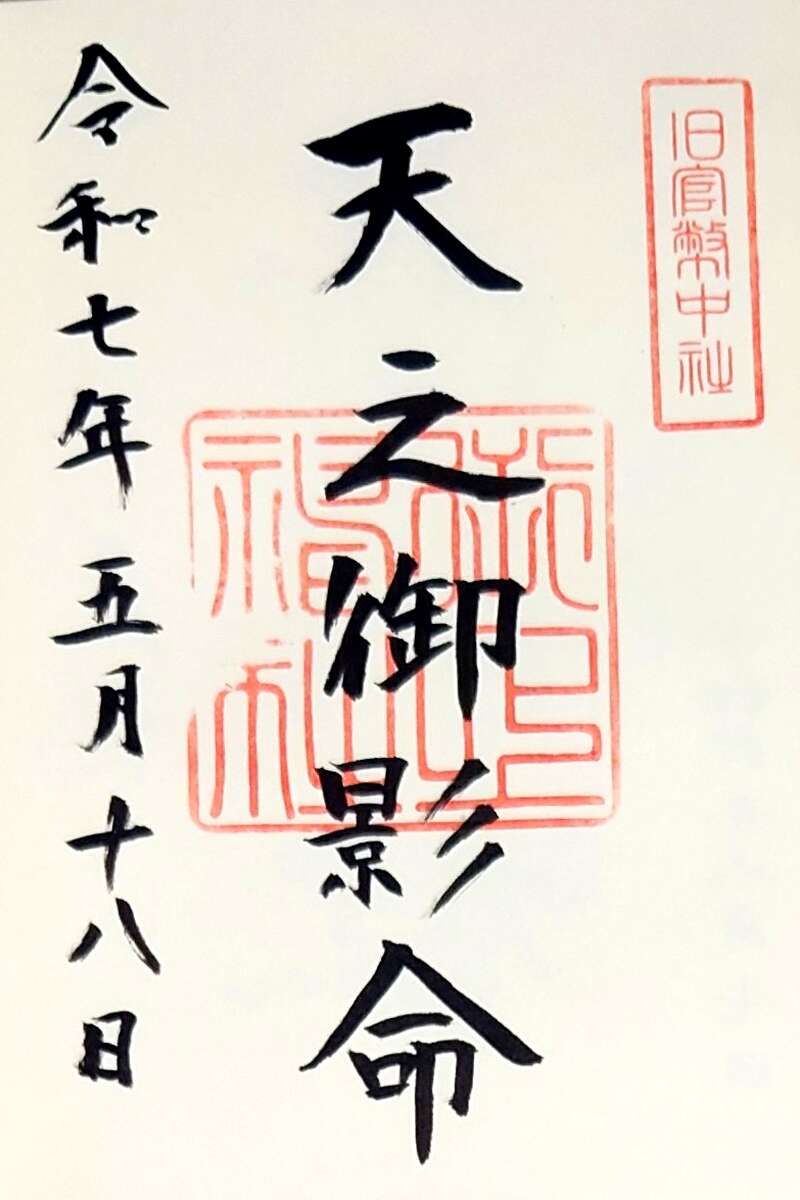 旧官幣中社
天之御影命
御上
神社
令和七年五月十八日